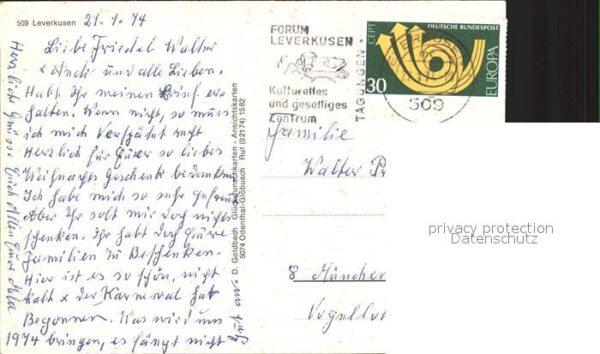 509 Leverkusen
21.1.74
Liebe Friedel Walter
+ Andi und alle Lieben.
Habt Ihr meinen Brief er-
halten. Wenn nicht, so muss
ich mich Verspätet recht
Herzlich für Eurer so liebes
Weihnachts Geschenk bedanken
Ich habe mich so sehr gefreut
Aber Ihr sollt mir doch nichts
schenken. Ihr habt doch Eure
Familien zu Beschenken.
Hier ist es so schön, nicht
kalt + der Karneval hat
Begonnen. Was wird uns
1974 bringen, es fängt nicht
gut an.
Herzlich Grüsse Euch Allen Eure
D. Goldbach Glückwunschkarten - Ansichtskarten
5074 Odenthal-Globusch Ruf (02174) 1582
FORUM
LEVERKUSEN
Kulturelles
und geselliges
Zentrum
TAGUNGEN
509
CEPT
DEUTSCHE BUNDESPOST
EUROPA
30
Familie
Walter
8 München
privacy protection
Datenschutz